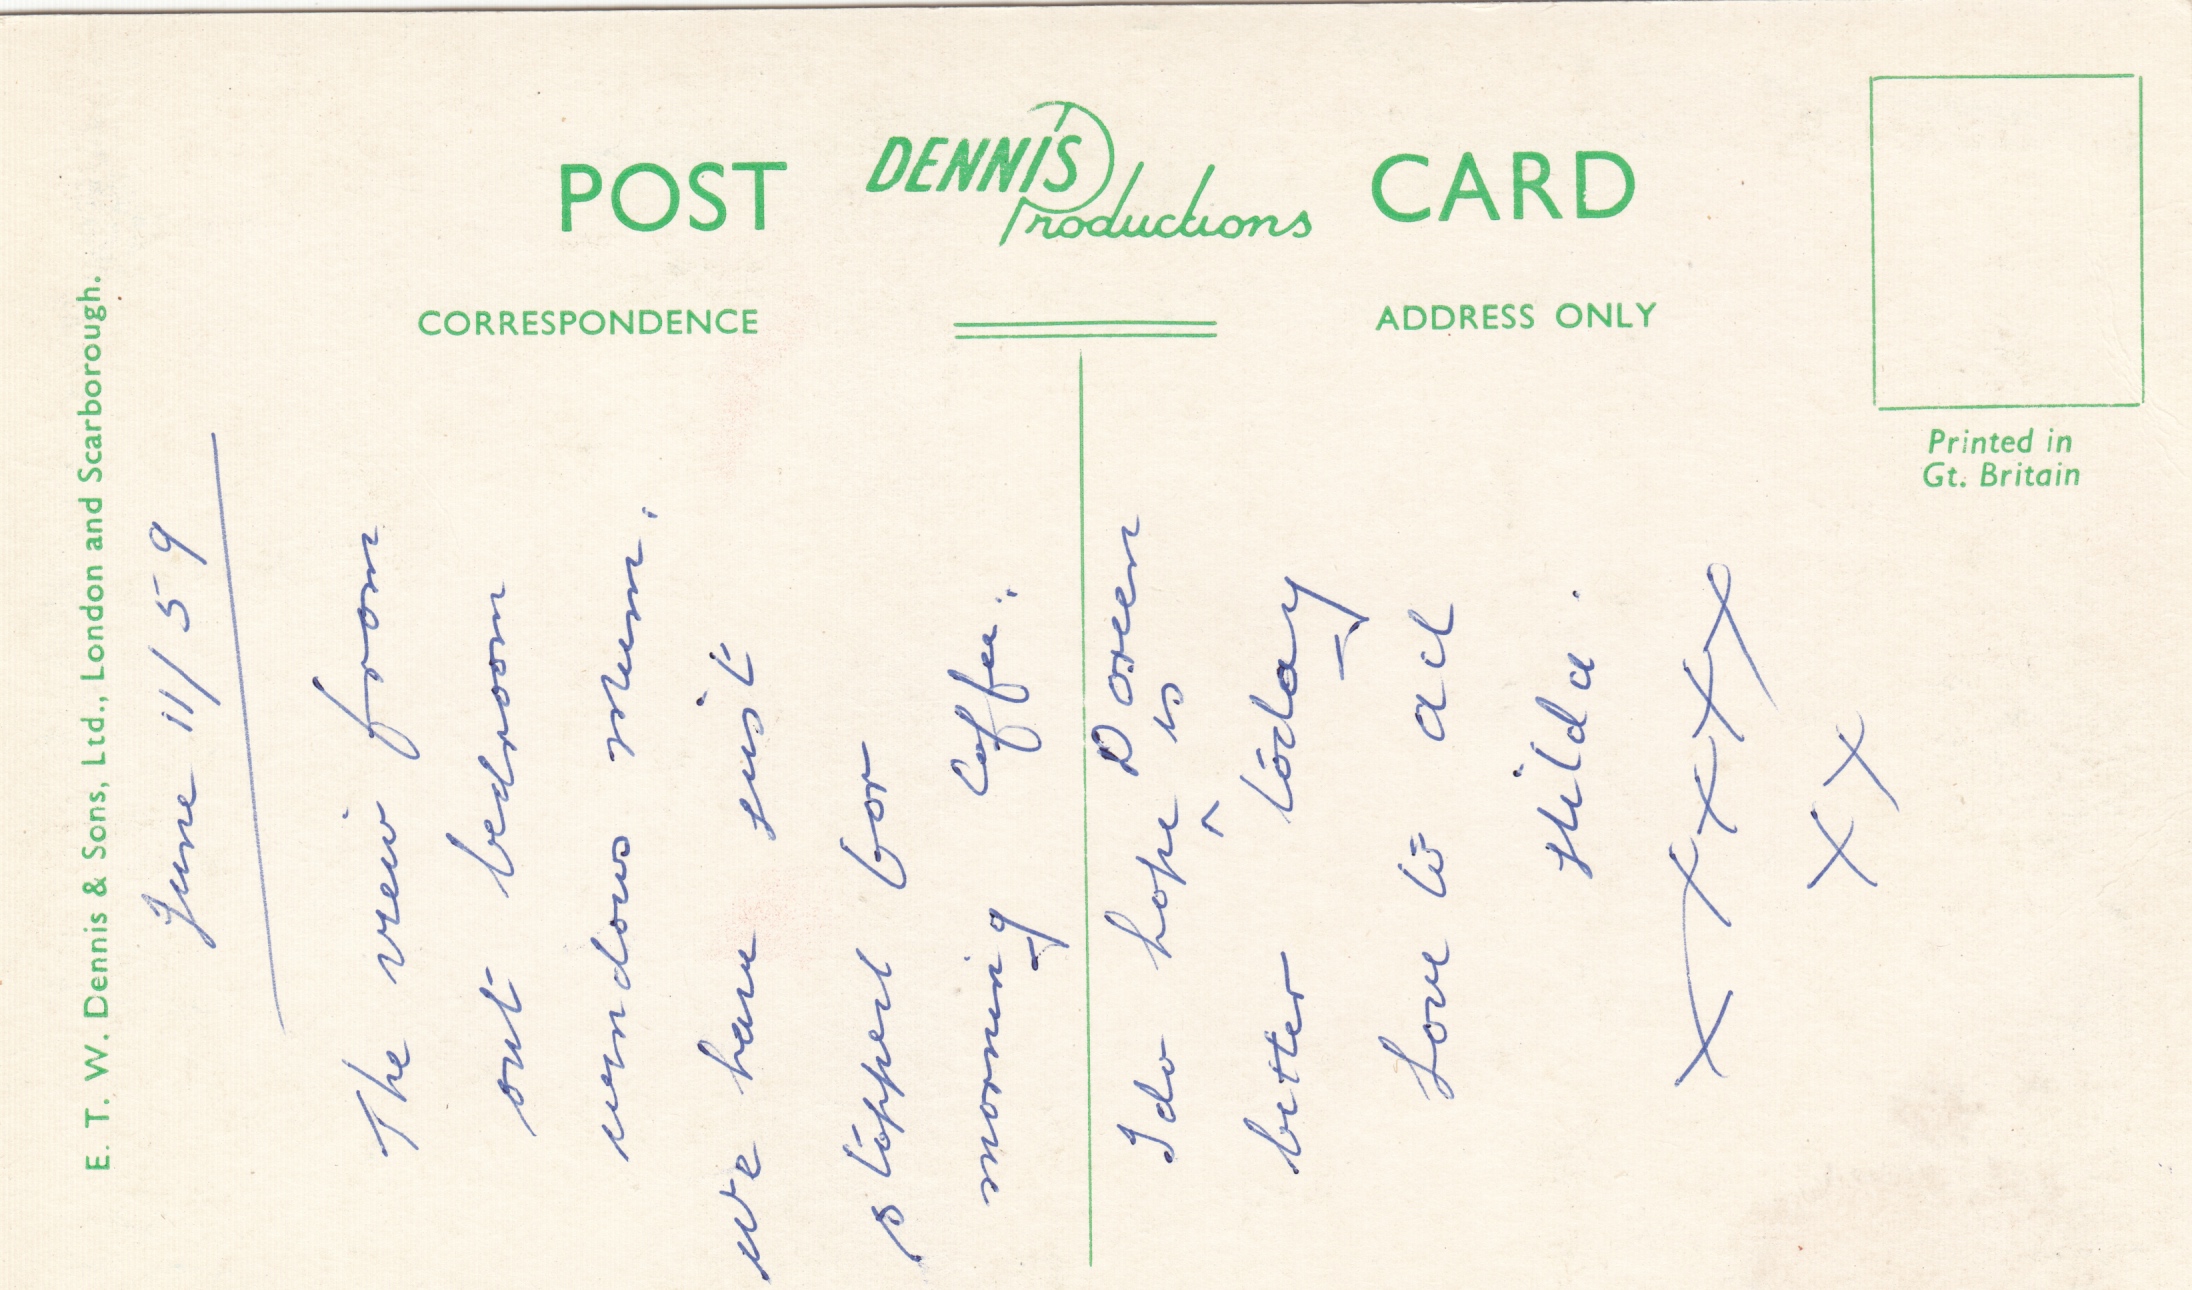 POST DENNIS Productions CARD
CORRESPONDENCE
ADDRESS ONLY
Printed in
Gt. Britain
E. T. W. Dennis & Sons, Ltd., London and Scarborough.
June 11/59
The view from
out bedroom
windows mum.
we have just
stopped for
morning Coffee.
I do hope Doreen
is
^
better today
Love to all
Hilda.
X X X X X
X X